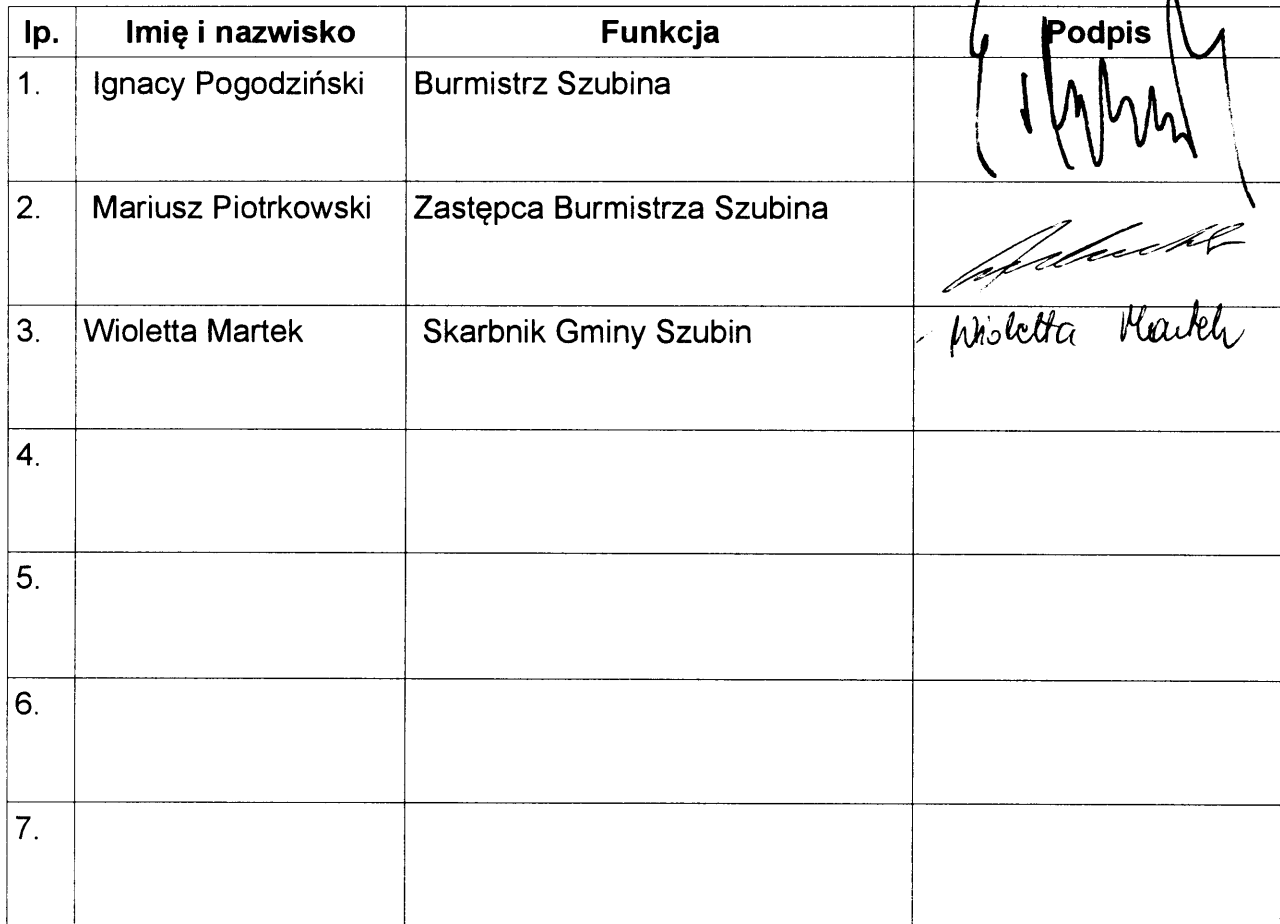 lp. Imię i nazwisko Funkcja Podpis
1. Ignacy Pogodziński Burmistrz Szubina
2. Mariusz Piotrkowski Zastępca Burmistrza Szubina
3. Wioletta Martek Skarbnik Gminy Szubin Wioletta Martek
4.
5.
6.
7.